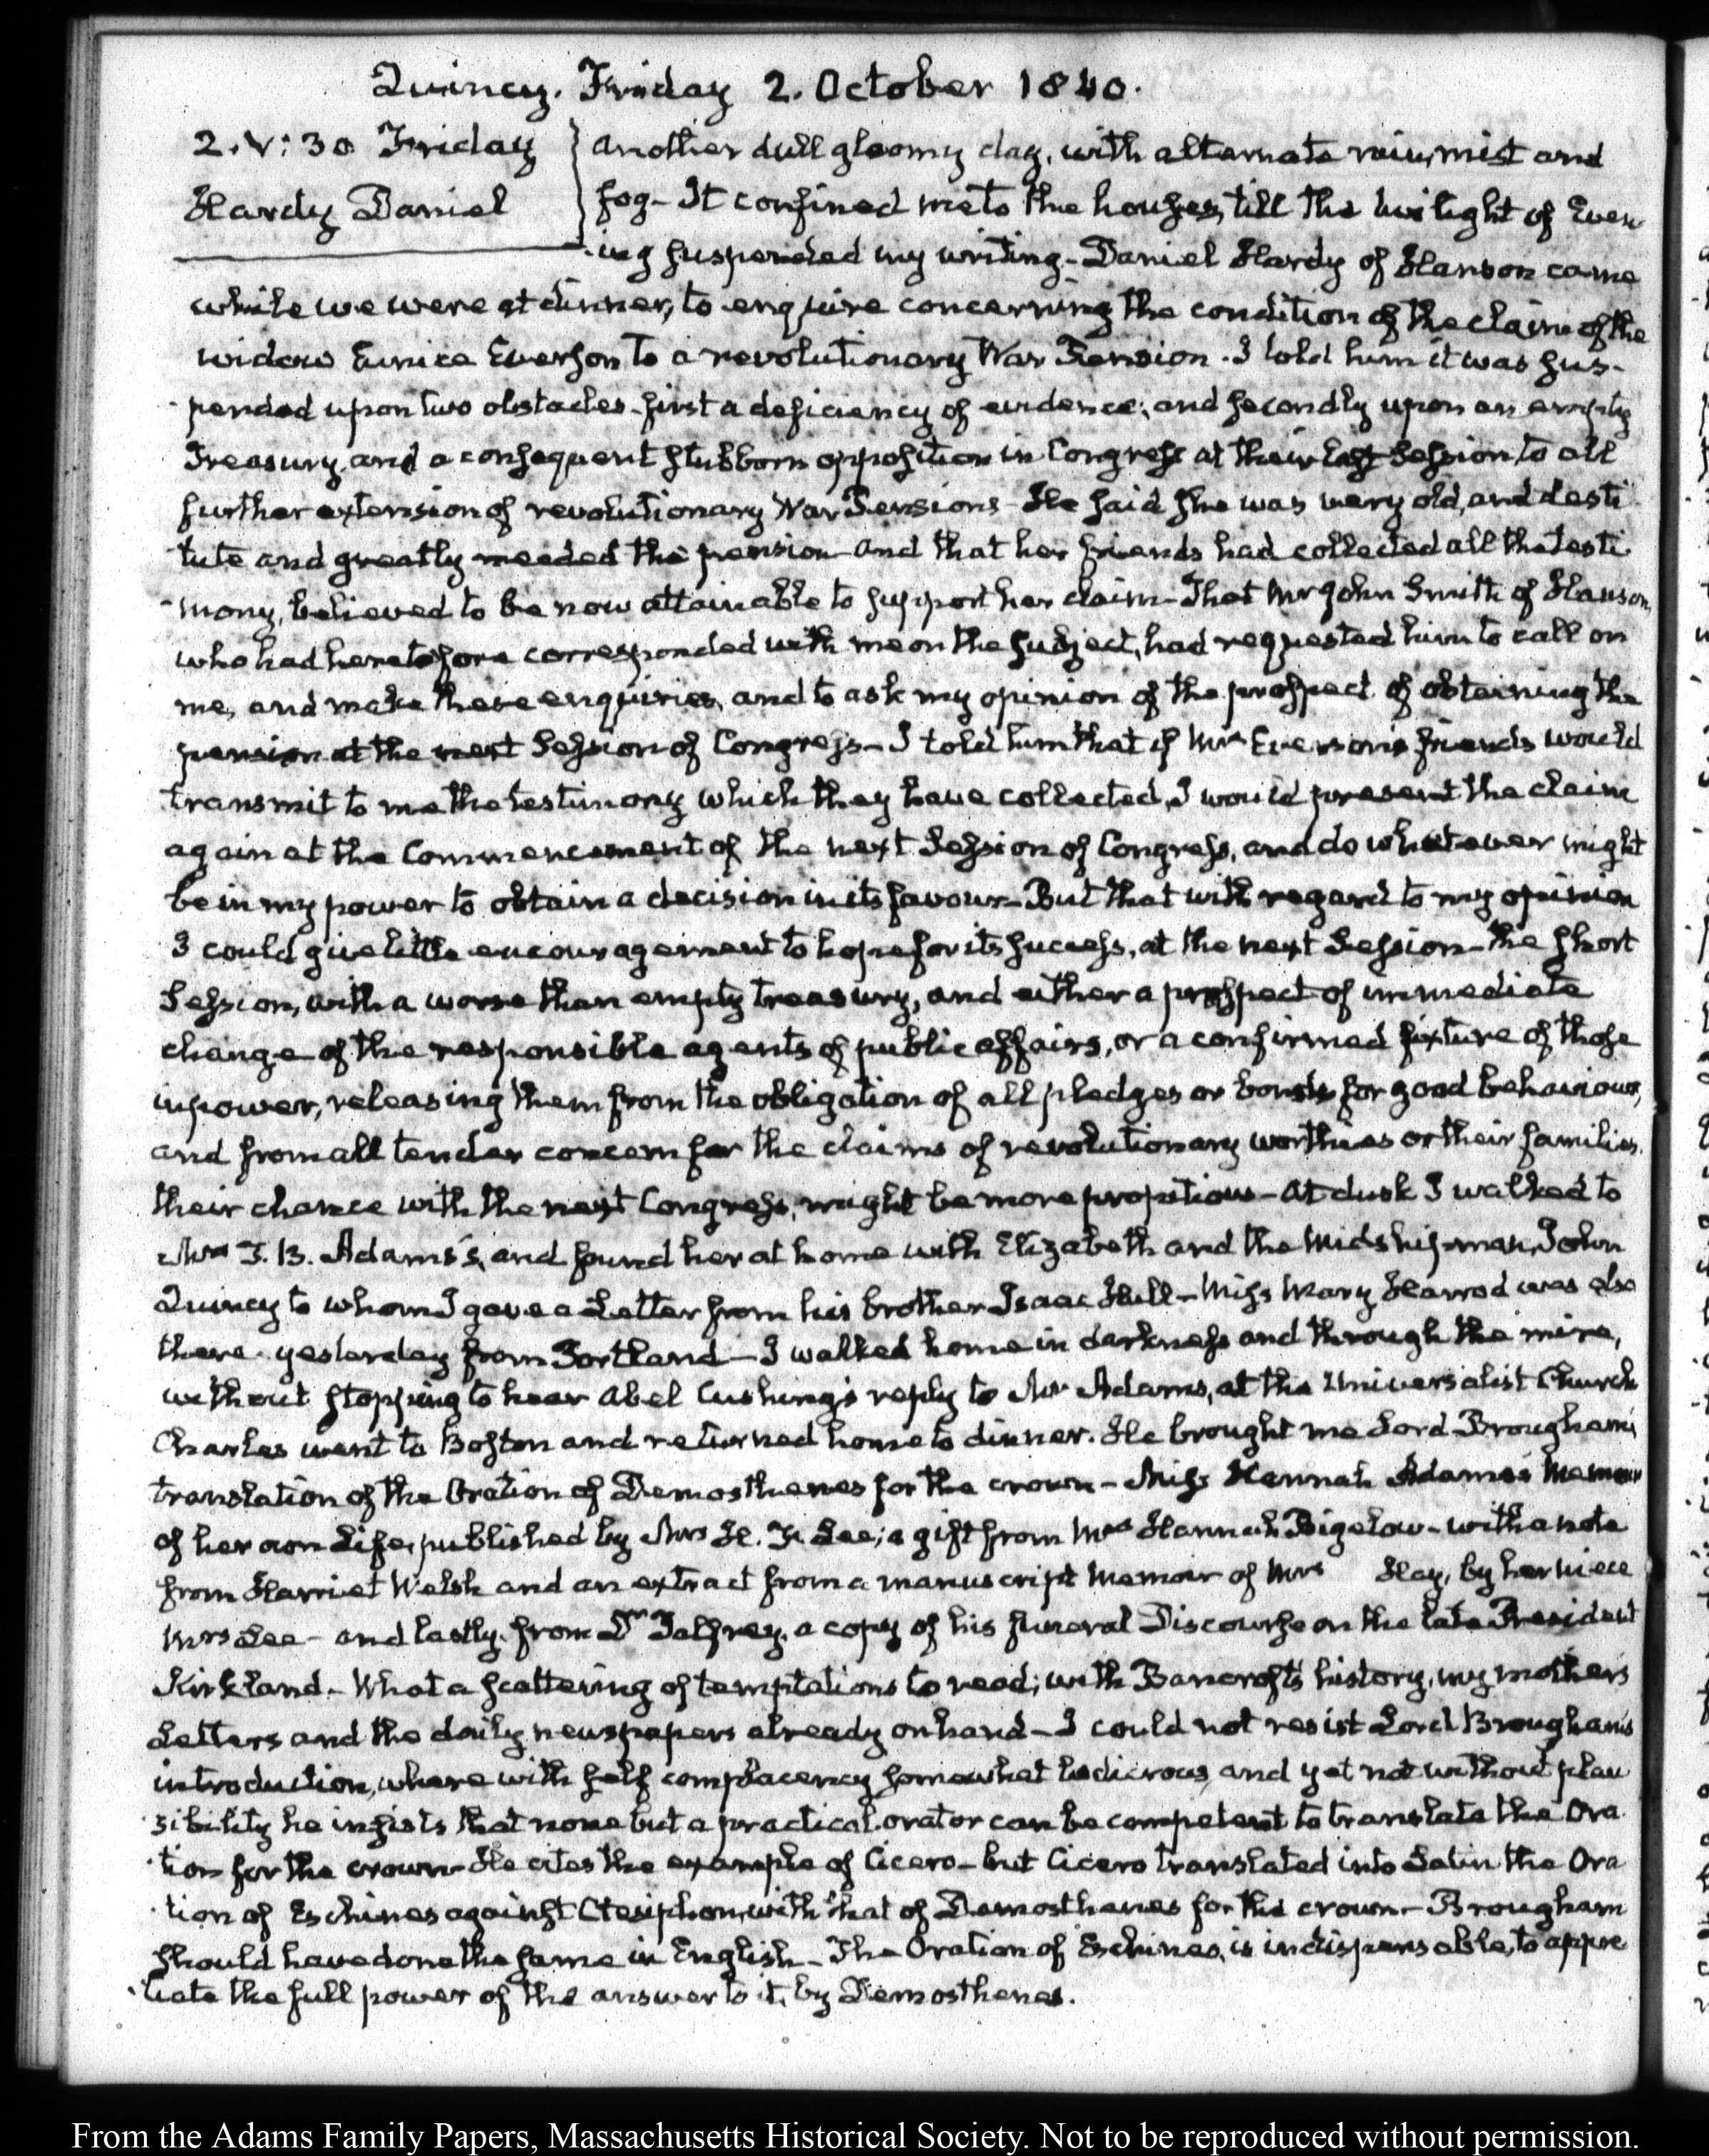 Quincy. Friday 2. October 1840.
2. V: 30 Friday
Hardy Daniel
Another dull gloomy day, with alternate rain, mist and
fog - It confined me to the house, till the twilight of Even
ing suspended my writing - Daniel Hardy of Hanson came
while we were at dinner, to enquire concerning the condition of the claim of the
widow Eunice Everson to a revolutionary War Pension. I told him it was sus-
pended upon two obstacles - first a deficiency of evidence; and secondly upon an empty
Treasury, and a consequent stubborn opposition in Congress at their last Session to all
further extension of revolutionary War Pensions - He said she was very old, and desti
tute and greatly needed the pension - and that her friends had collected all the testi
mony, believed to be now attainable to support her claim - That Mr John Smith of Hanson,
who had heretofore corresponded with me on the subject, had requested him to call on
me, and make these enquiries, and to ask my opinion of the prospect of obtaining the
pension at the next Session of Congress - I told him that if Mrs Everson's friends would
transmit to me the testimony which they have collected, I would present the claim
again at the Commencement of the next Session of Congress, and do whatever might
be in my power to obtain a decision in its favour - But that with regard to my opinion
I could give little encouragement to hope for its success, at the next Session - the short
Session, with a worse than empty treasury, and either a prospect of immediate
change of the responsible agents of public affairs, or a confirmed fixture of those
in power, releasing them from the obligation of all pledges or bonds for good behaviour,
and from all tender concern for the claims of revolutionary worthies or their families.
their chance with the next Congress, might be more propitious - At dusk I walked to
Mrs T. B. Adams's, and found her at home with Elizabeth and the Midshipman, John
Quincy to whom I gave a Letter from his brother Isaac Hull - Miss Mary Harrod was also
there - yesterday from Portland - I walked home in darkness and through the mire,
without stopping to hear Abel Cushing's reply to Mr Adams, at the Universalist Church
Charles went to Boston and returned home to dinner. He brought me Lord Brougham's
translation of the Oration of Demosthenes for the crown - Miss Hannah Adams's Memoir
of her own Life, published by Mrs H. F. Lee; a gift from Mrs Hannah Bigelow - with a note
from Harriet Welsh and an extract from a manuscript Memoir of Mrs Hay, by her niece
Mrs Lee - and lastly, from Dr Palfrey, a copy of his funeral Discourse on the late President
Kirkland - What a scattering of temptations to read; with Bancroft's history, my mother's
Letters and the daily newspapers already on hand - I could not resist Lord Brougham's
introduction, where with self complacency somewhat ludicrous, and yet not without plau
sibility he insists that none but a practical orator can be competent to translate the Ora
tion for the crown - He cites the example of Cicero - but Cicero translated into Latin the Ora
tion of Eschines against Ctesiphon, with that of Demosthenes for the crown - Brougham
should have done the same in English - The Oration of Eschines, is indispensable, to appre
ciate the full power of the answer to it, by Demosthenes.
From the Adams Family Papers, Massachusetts Historical Society. Not to be reproduced without permission.